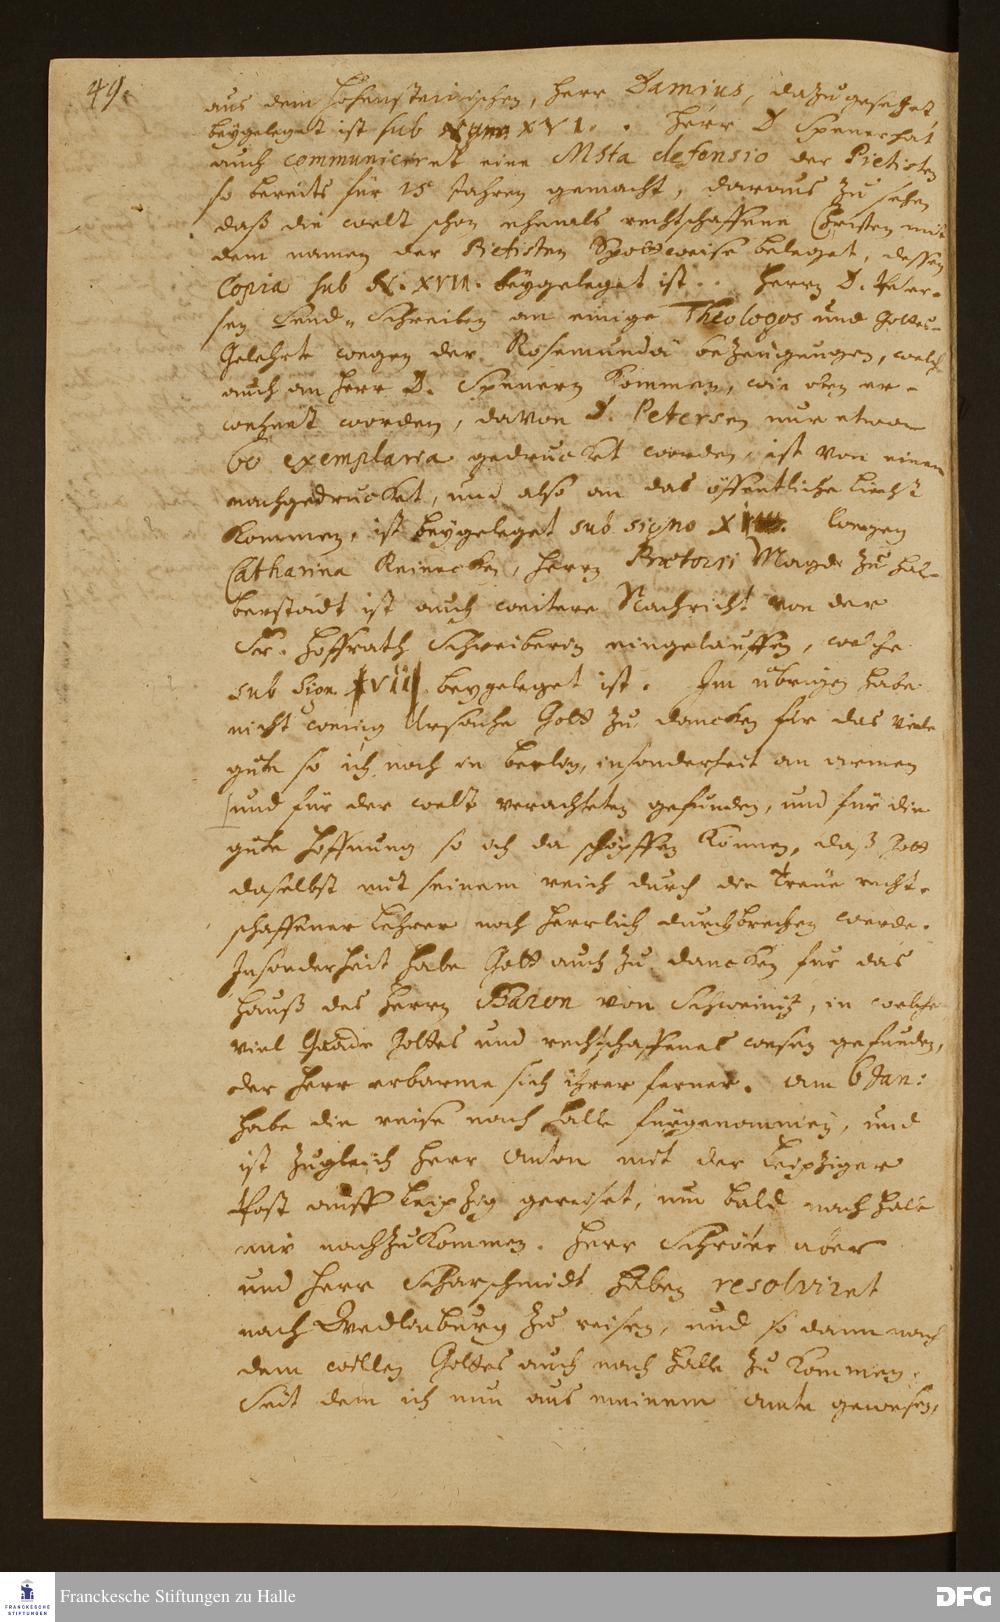 49.
aus dem Hohensteinischen, Herr Damius, dazu gesetzet,
beygeleget ist sub Num XVI. . Herr D Spener hat
auch communiciret eine Msta defensio der Pietisten
so bereits für 15 Jahren gemacht, daraus zu sehen
daß die welt schon ehemals rechtschaffene Christen mit
dem namen der Pietisten Spottweise beleget, dessen
Copia sub N. XVII. beygeleget ist. . Herrn D. Peter-
sen Send-Schreiben an einige Theologos und Gottes-
Gelehrte wegen der Rosemundä bezeugungen, welch
auch an Herr D. Spenern kommen, wie oben er-
wehnet worden, davon D. Petersen nur etwan
60 exemplaria gedrucket worden, ist von einem
nachgedrucket, und also an das öffentliche liecht
kommen, ist beygeleget sub signo wegen
Catharina Reinecken, Herrn Prätorii Magd zu Hal-
berstadt ist auch weitere Nachricht von der
Fr. Hoffrath Schreiberin eingelauffen, welche
sub sign. beygeleget ist. Im übrigen habe
nicht wenig Ursache Gott zu dancken für das viele
gute so ich noch in Berlin, insonderheit an armen
und für der welt verachteten gefunden, und für die
gute Hoffnung so ich da schöpffen können, daß Gott
daselbst mit seinem reich durch die Treue recht-
schaffener Lehrer noch herrlich durchbrechen werde.
Insonderheit habe Gott auch zu dancken für das
Hauß des Herrn Baron von Schweinitz, in welchem
viel Gnade Gottes und rechtschaffenes wesen gefunden,
der Herr erbarme sich ihrer ferner. Am 6 Jan:
habe die reise nach Halle fürgenommen, und
ist zugleich Herr Anton mit der Leipziger
Post auff Leipzig gereiset, um bald nach Halle
mir nachzukommen. Herr Schröer aber
und Herr Scharschmidt haben resolviret
nach Quedlinburg zu reisen, und so dann nach
dem willen Gottes auch nach Halle zu kommen.
Seit dem ich nun aus meinem Amte gewesen,
Franckesche Stiftungen zu Halle
FRANCKESCHE
STIFTUNGEN
DFG